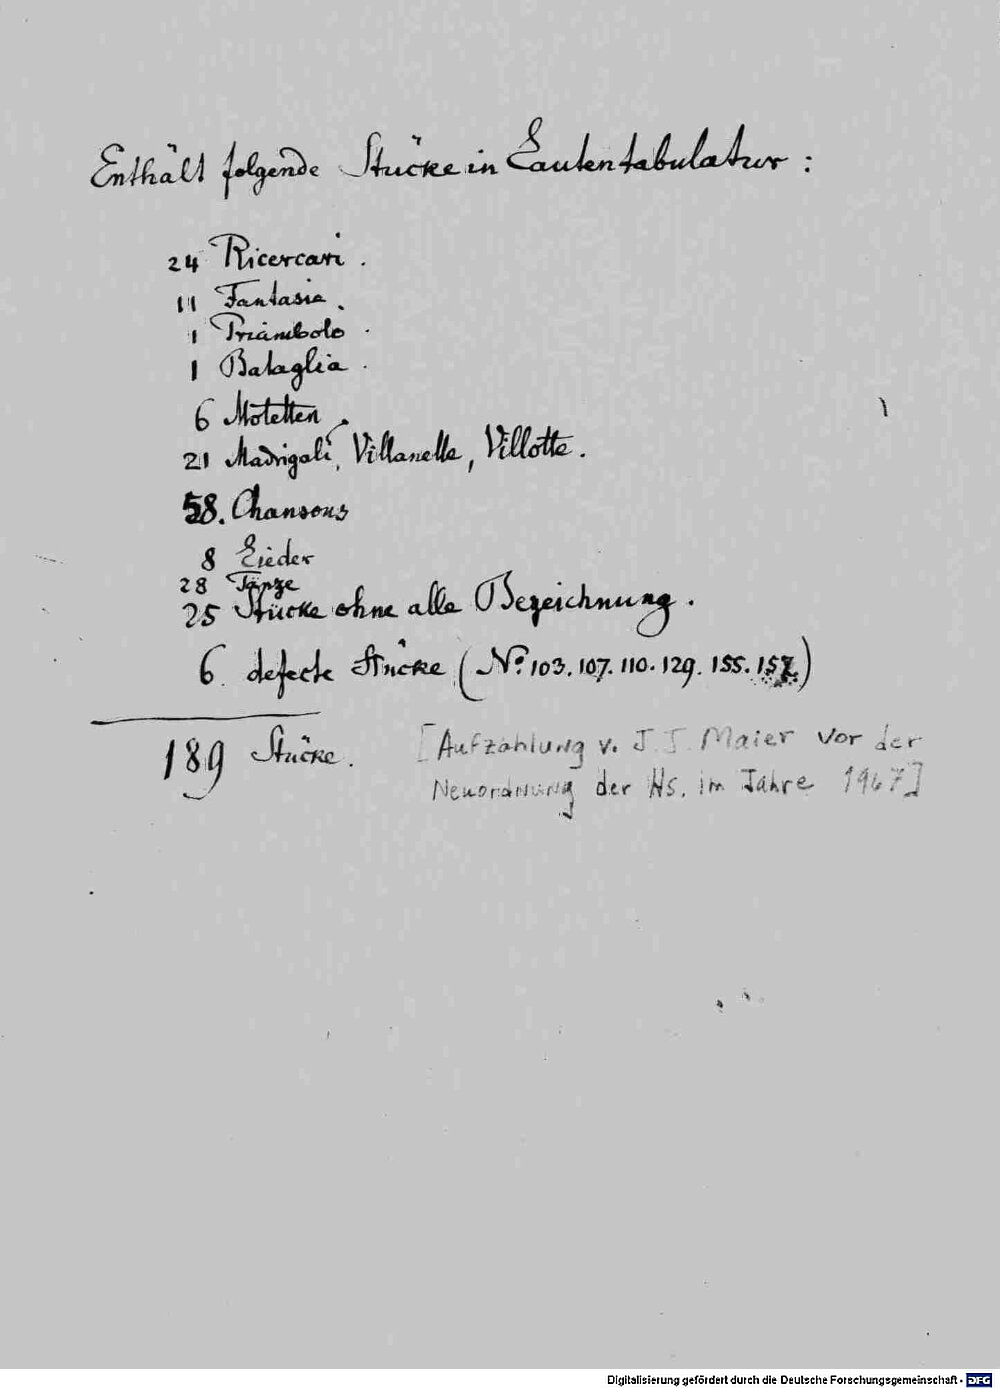 Enthält folgende Stücke in Lautentabulatur :
24 Ricercari .
11 Fantasia .
1 Priambolo .
1 Bataglia .
6 Motetten .
21 Madrigali, Villanelle, Villotte .
58. Chansons
8 Lieder
28 Tänze
25 Stücke ohne alle Bezeichnung .
6 defecte Stücke (No. 103. 107. 110. 129. 155. 157.)
189 Stücke .
[Aufzählung v. J. J. Maier vor der
Neuordnung der Hs. im Jahre 1967]
Digitalisierung gefördert durch die Deutsche Forschungsgemeinschaft - DFG